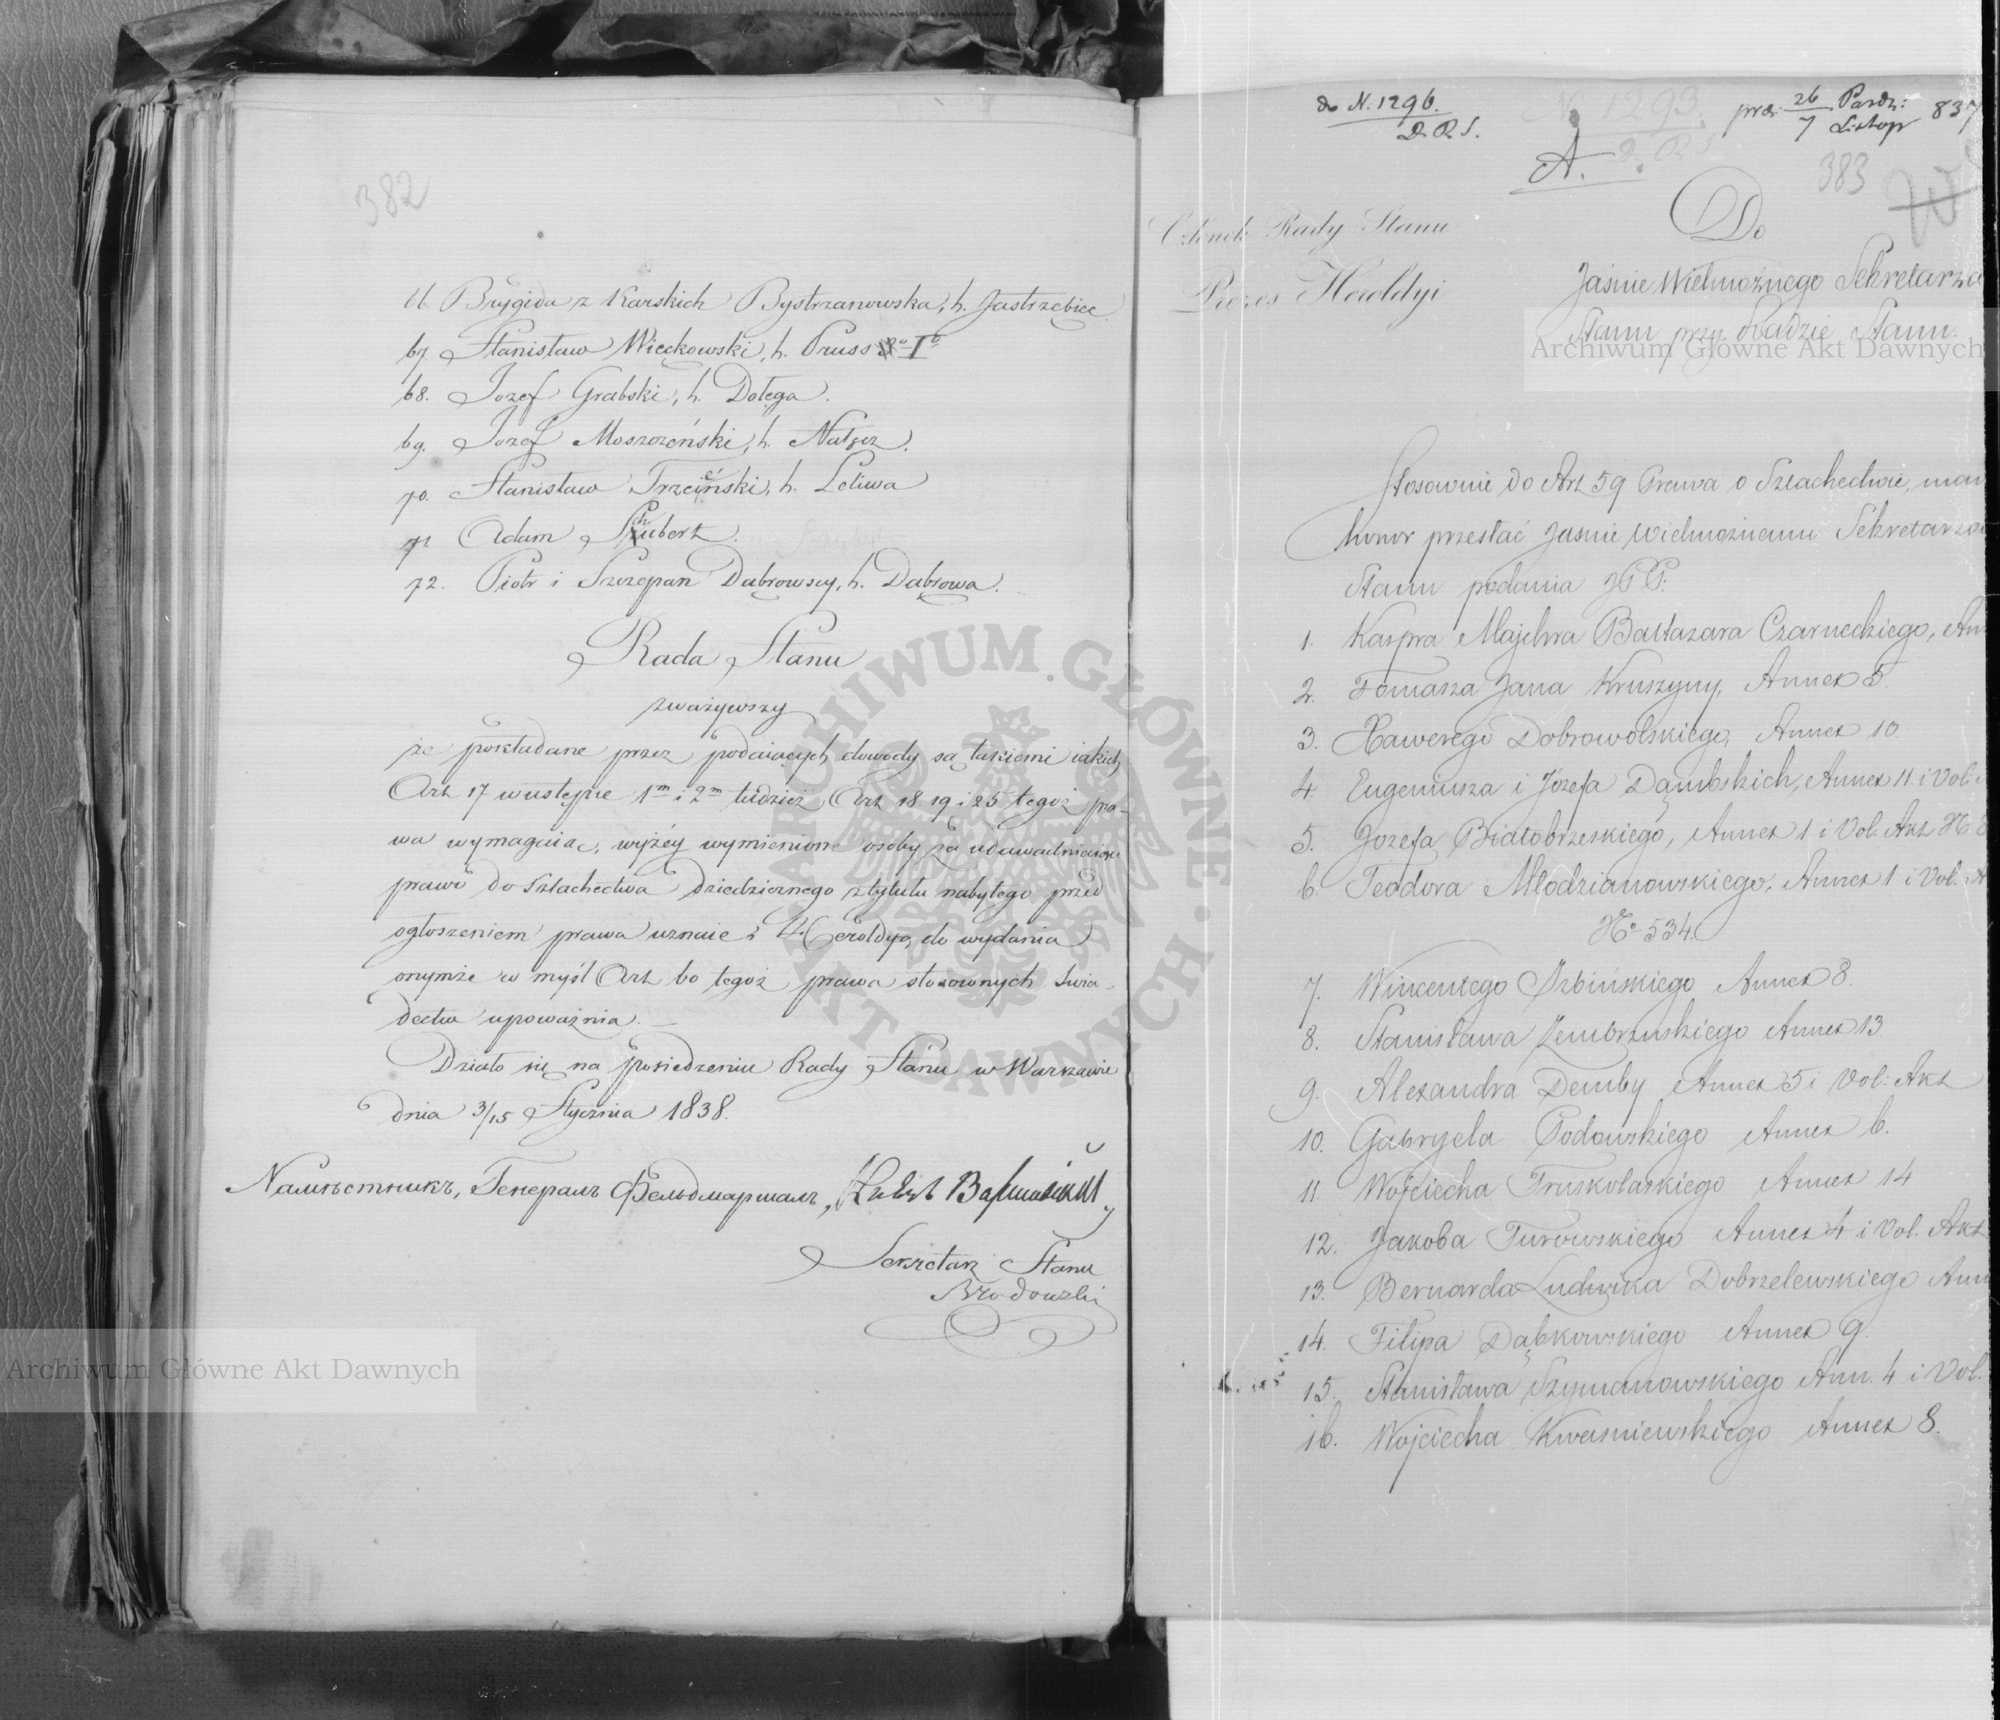 382
66. Brygida z Karskich Bystrzanowska, h. Jastrzębiec
67. Stanisław Więckowski, h. Pruss Io
68. Jozef Grabski, h. Dołęga.
69. Jozef Moszczeński, h. Nałęcz.
70. Stanisław Trzciński, h. Leliwa
71. Adam Schubert.
72. Piotr i Szczepan Dąbrowscy, h. Dąbrowa.
Rada Stanu
zważywszy
że pokładane przez podaiących dowody są takiemi iakich
Art 17 w ustępie 1m i 2m tudzież Art 18 19 i 25 tegoż pra-
wa wymagaią, wyżéy wymienione osoby za udowadniaiące
prawo do Szlachectwa dziedzicznego z tytułu nabytego przed
ogłoszeniem prawa uznaie i Heroldyą do wydania
onymże w myśl Art 60 tegoż prawa stosownych świa-
dectw upoważnia. —
Działo się na posiedzeniu Rady Stanu w Warszawie
dnia 3/15 Stycznia 1838.
Намѣстникъ, Генералъ Фельдмаршалъ,
Sekretarz Stanu
Brodowski
do N. 1296.
D. R. S.
N 1293.
D. R. S
A.
prez. 26/7 Pazdz: Listop 837
383
Członek Rady Stanu
Prezes Heroldyi
Do
Jaśnie Wielmożnego Sekretarza
Stanu przy Radzie Stanu.
Stosownie do Art 59 Prawa o Szlachectwie, mam
honor przesłać Jaśnie Wielmożnemu Sekretarzowi
Stanu podania JPP:
1. Kaspra Majchra Baltazara Czarneckiego, An
2. Tomasza Jana Kruszyny, Annex 5.
3. Xawerego Dobrowolskiego, Annex 10
4. Eugeniusza i Józefa Dąmbskich, Annex 11 i Vol.
5. Jozefa Białobrzeskiego, Annex 1 i Vol. Akt No
6. Teodora Młodzianowskiego, Annex 1 i Vol. A
No 534.
7. Wincentego Izbińskiego Annex 8.
8. Stanisława Zembrzuskiego Annex 13
9. Alexandra Demby Annex 5 i Vol: Akt
10. Gabryela Podowskiego Annex 6.
11. Wojciecha Truskolaskiego Annex 14
12. Jakoba Turowskiego Annex 4 i Vol. Akt
13. Bernarda Ludwika Dobrzelewskiego Ann
14. Filipa Dąbkowskiego Annex 9.
15. Stanisława Szymanowskiego Ann. 4 i Vol.
16. Wojciecha Kwasniewskiego Annex 8.
Archiwum Główne Akt Dawnych
Archiwum Główne Akt Dawnych
ARCHIWUM GŁÓWNE AKT DAWNYCH